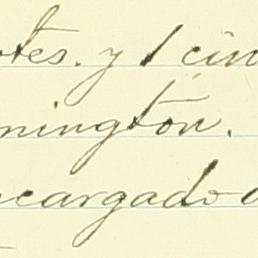 otes. y 1 cin
nington.
ncargado a